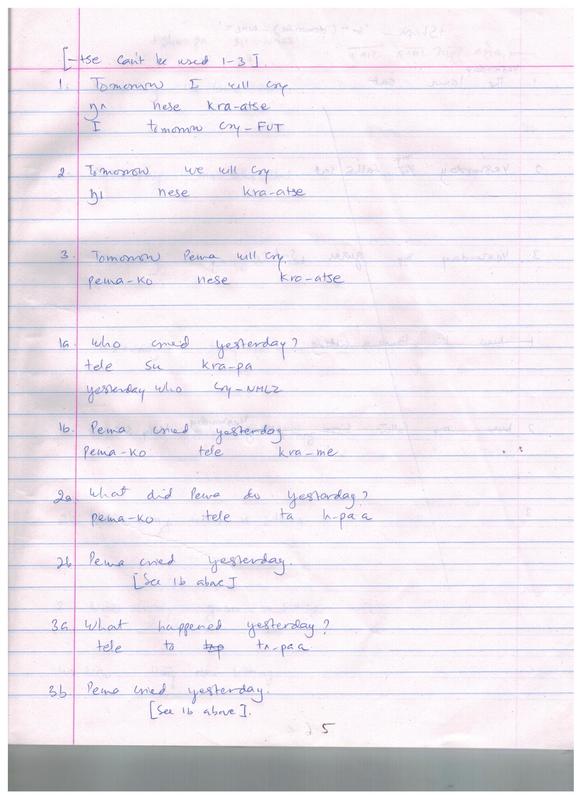 [-tse can't be used 1-3].
1. Tomorrow I will cry
ŋʌ nese kra-atse
I tomorrow cry-FUT
2. Tomorrow we will cry
ŋı nese kra-atse
3. Tomorrow Pema will cry.
pema-ko nese kra-atse
1a. Who cried yesterday?
tele su kra-pa
yesterday who cry-NMLZ
1b. Pema cried yesterday
pema-ko tele kra-me
2a. What did Pema do yesterday?
pema-ko tele ta h-pa a
2b Pema cried yesterday.
[See 1b above]
3a What happened yesterday?
tele ta tʌ-paa
3b. Pema cried yesterday.
[See 1b above].
5